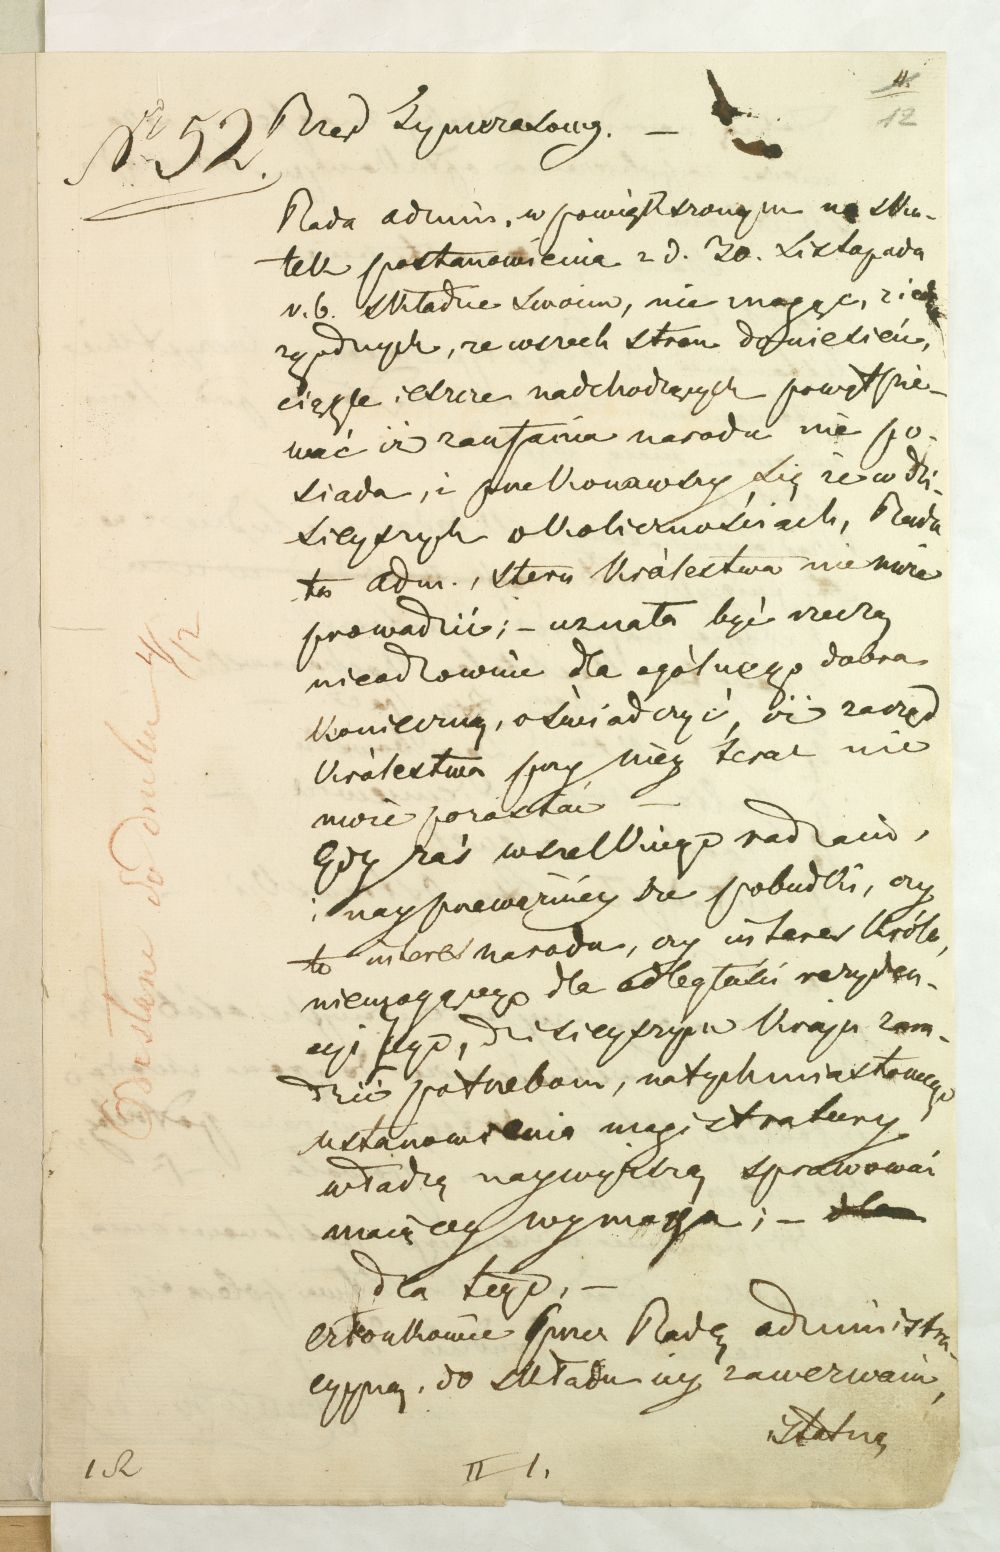 11.
12
N° 52. Rząd Tymczasowy. —
Rada admin. w powiększonym na sku-
tek postanowienia z d. 30. Listopada
r. b. składzie swoim, nie mogąc, z
rzędnych, ze wszech stron doniesień,
ciągle ieszcze nadchodzących powątpie-
wać iż zaufania narodu nie po-
siada, i przekonawszy się że w dzi-
sieyszych okolicznościach, Rada
ta adm., steru Królestwa nie może
prowadzić; – uznała być rzeczą
nieodzownie dla ogólnego dobra
konieczną, oświadczyć, iż zarząd
Królestwa przy niey teraz nie
może pozostać —
Gdy zaś wszelkiego rodzaiu,
i nayprzeważniey sze pobudki, czy
to interes narodu, czy interes Króla,
niemogącego dla odległości rezyden-
cyi jego, dzisieyszym Kraju zara-
dzić potrzebom, natychmiastowego
ustanowienia magistratury
władzę naywyższą sprawować
maiącey wymaga; – dla
dla tego, —
członkowie przez Radę administra-
cyyną, do składu iey zawezwani,
istotną
Odesłane do druku 4/12
12
II 1.